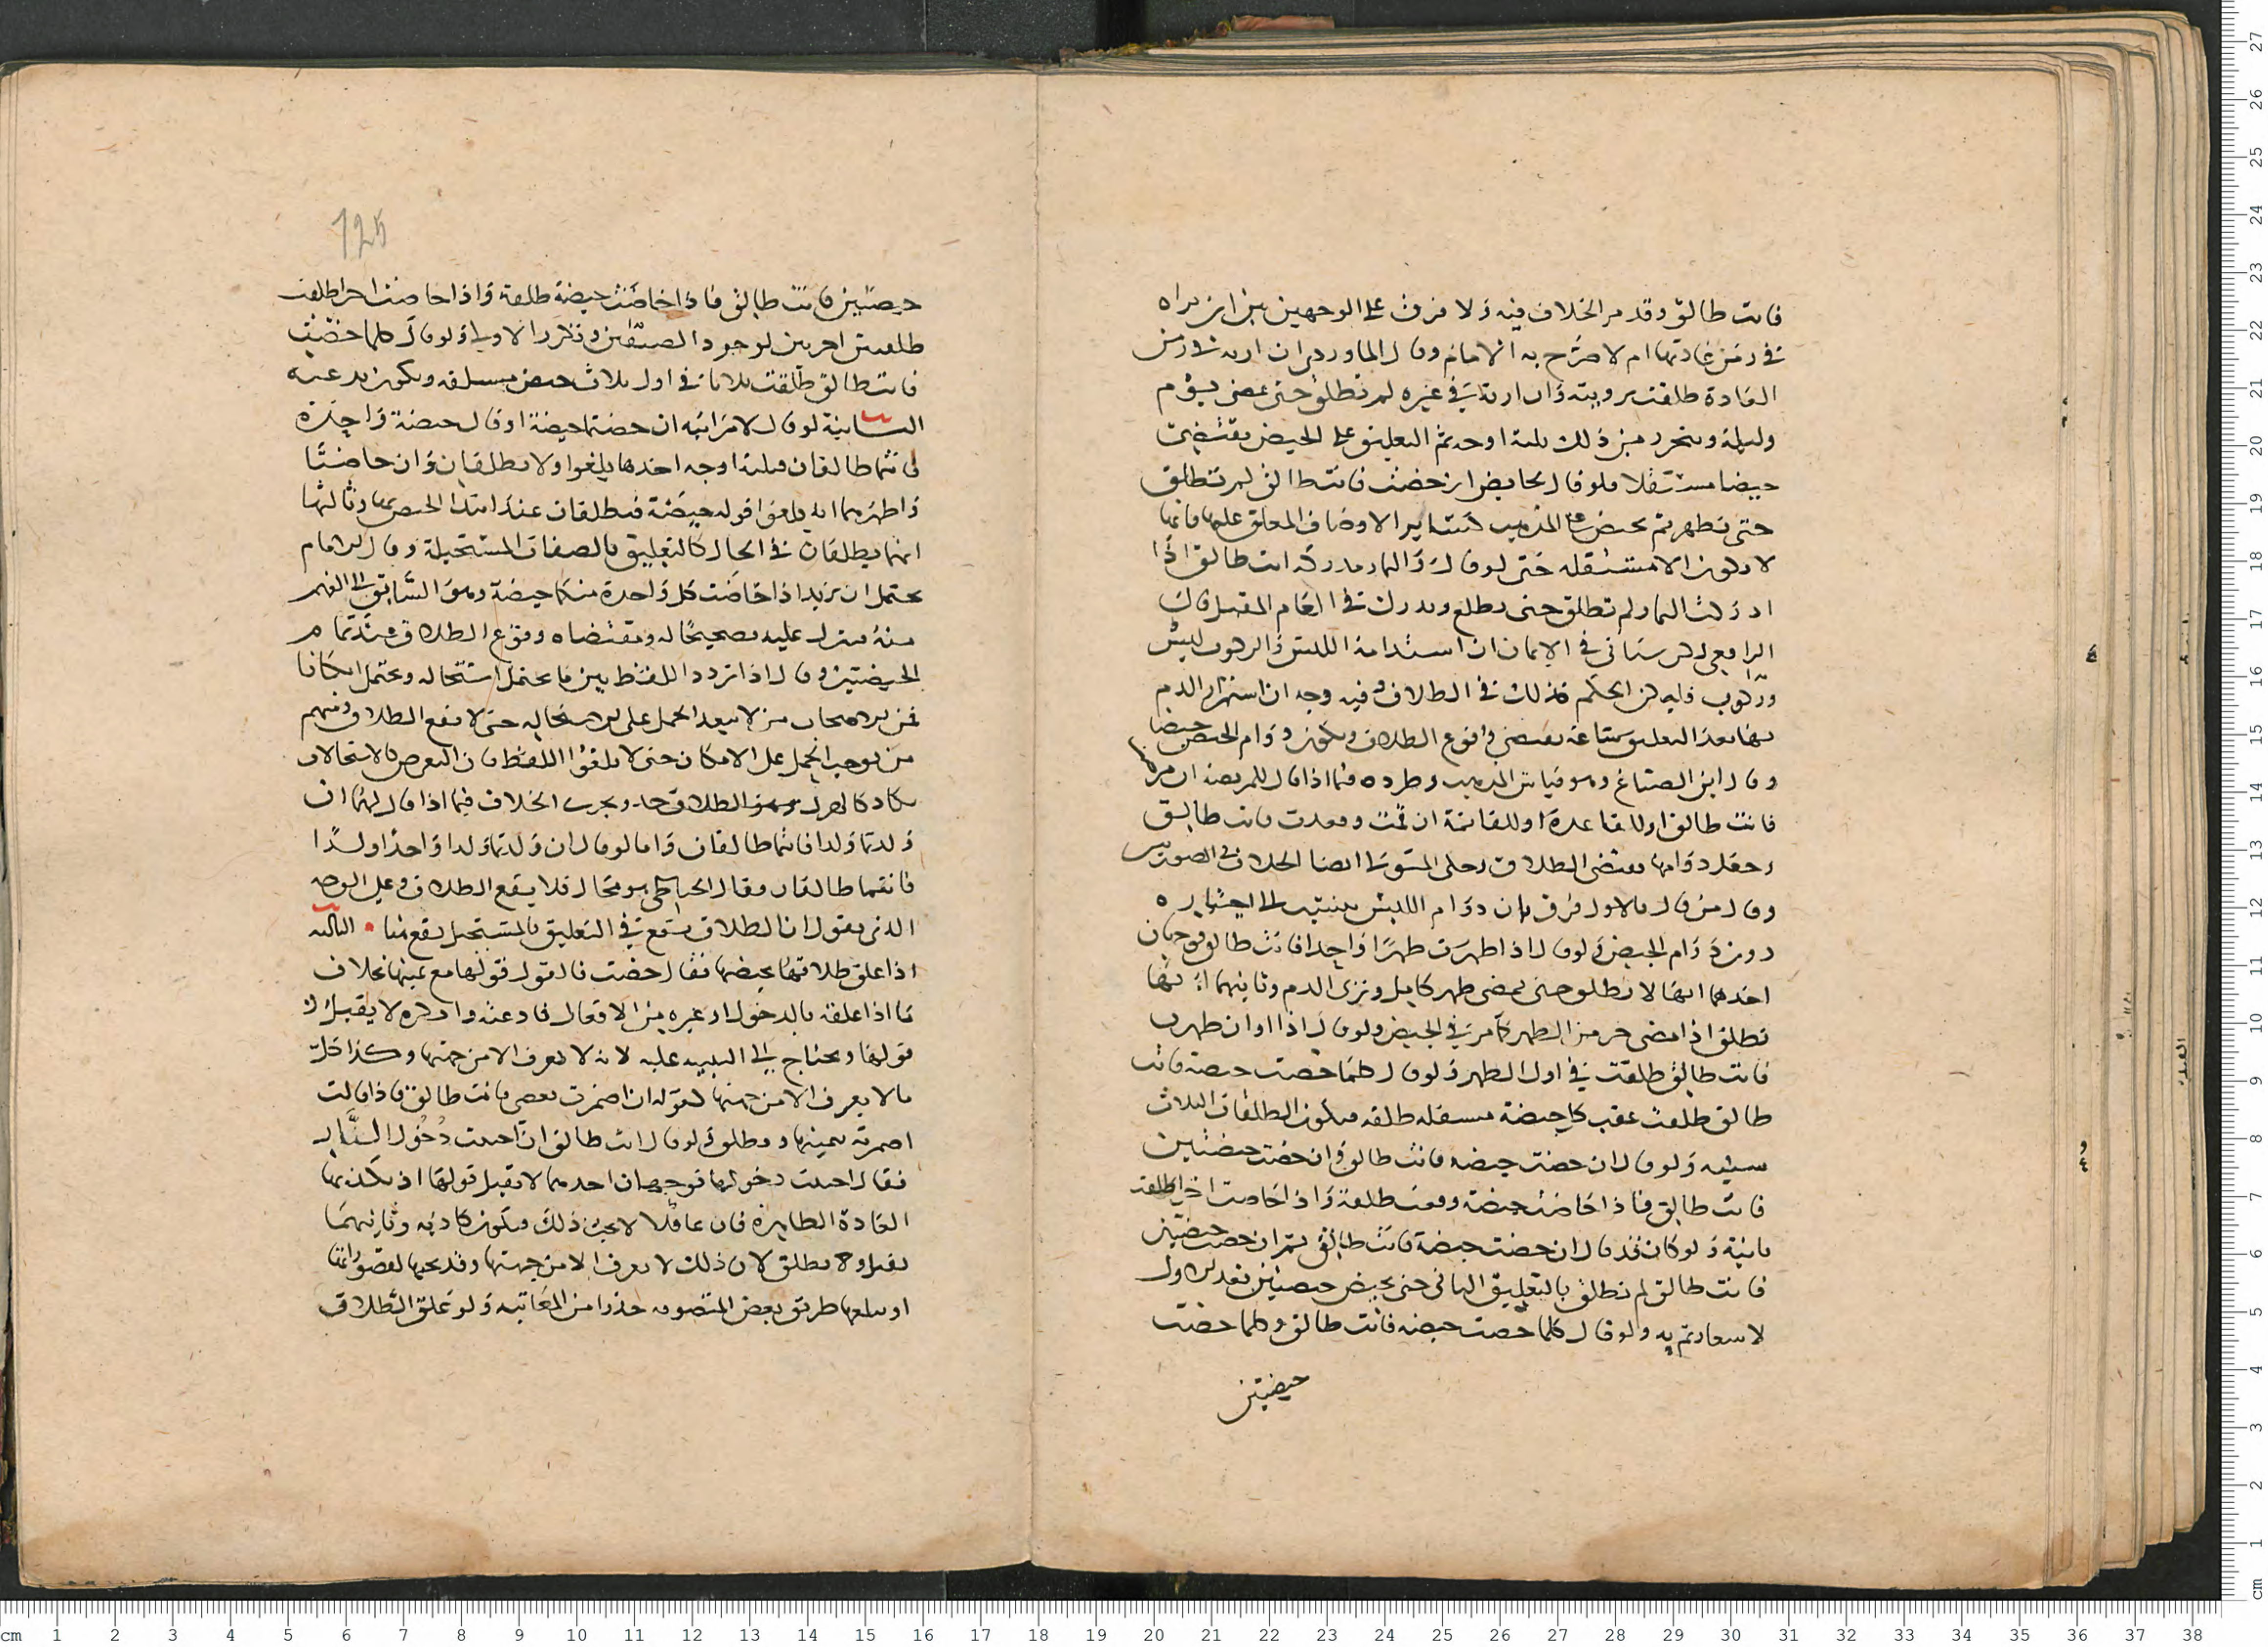 فانت طالق وقد مر الخلاف فيه ولا فرق على الوجهين بين ان تراه
في زمن عادتها ام لا صرح به الامام وقال الماوردي ان راته في زمن
العادة طلقت برويته وان راته في غيره لم تطلق حتى يمضي يوم
وليلة ويتحرر من ذلك ثلثة اوجه ثم التعليق على الحيض يقتضي
حيضا مستقبلا فلو قال لحايض ان حضت فانت طالق لم تطلق
حتى تطهر ثم تحيض على المذهب كساير الاوصاف المعلق عليها فانها
لا تكون الا مستقبله حتى لو قال والثمار مدركه انت طالق اذا
ادركت الثمار لم تطلق حتى تطلع وتدرك في العام المقبل قال
الرافعي لكن سياتي في الايمان ان استدامة اللبس والركوب لبس
وركوب فليكن الحكم كذلك في الطلاق وفيه وجه ان استمرار الدم
بها بعد التعليق ساعة يقتضي وقوع الطلاق ويكون دوام الحيض حيضا
وقال ابن الصباغ وهو قياس المذهب وطرده فيما اذا قال للمريضة ان مرضت
فانت طالق او للقاعدة او للقائمة ان قمت وقعدت فانت طالق
وجعل دوامها يقتضي الطلاق وحكى المتولي ايضا الخلاف في الصورتين
وقال من قال بالاول فرق بان دوام اللبس ينتسب الى اختياره
دون دوام الحيض ولو قال اذا طهرت طهرا واحدا فانت طالق فوجهان
احدهما انها لا تطلق حتى يمضي طهر كامل وترى الدم وثانيهما انها
تطلق اذا مضى جزء من الطهر كما مر في الحيض ولو قال اذا او ان طهرت
فانت طالق طلقت في اول الطهر ولو قال كلما حضت حيضة فانت
طالق طلقت عقب كل حيضة مستقبله طلقه فتكون الطلقات الثلاث
سنيه ولو قال ان حضت حيضه فانت طالق وان حضت حيضتين
فانت طالق فاذا حاضت حيضة وقعت طلقة واذا حاضت اخرى طلقة
ثانية ولو كان قد قال ان حضت حيضة فانت طالق ثم ان حضت حيضتين
فانت طالق لم تطلق بالتعليق الثاني حتى تحيض حيضتين بعد الاولى
لاشعار ثم به ولو قال كلما حضت حيضه فانت طالق وكلما حضت
حيضتين
125
حيضتين فانت طالق فاذا حاضت حيضة طلقة واذا حاضت اخرى طلقت
طلقتين اخرتين لوجود الصفتين وتكرر الاولى ولو قال كلما حضت
فانت طالق طلقت ثلاثا في اول ثلاث حيض مستقبله ويكون بدعيه
الثانية لو قال لامراتيه ان حضتما حيضة او قال حيضة واحدة
فانتما طالقان فثلثة اوجه احدها يلغوا ولا تطلقان وان حاضتا
واظهرهما انه يلغوا قوله حيضة فتطلقان عند ابتداء الحيض بهما وثالثها
انهما يطلقان في الحال كالتعليق بالصفات المستحيلة وقال الامام
يحتمل ان يريد اذا حاضت كل واحدة منكما حيضة وهو السابق الى الفهم
منه فينزل عليه تصحيحا له ومقتضاه وقوع الطلاق عند تمام
الحيضتين وقال اذا تردد اللفظ بين ما يحتمل استحاله ويحتمل امكانا
فمن الاصحاب من لا يبعد الحمل على الاستحاله حتى لا يقع الطلاق ومنهم
من يوجب الحمل على الامكان حتى لا يلغوا اللفظ فان التعرض للاستحالات
يكاد كالهزل وهو الطلاق جد ويجري الخلاف فيما اذا قال لهما ان
ولدتما ولدا فانتما طالقان واما لو قال ان ولدتما ولدا واحدا او لدا
فانتما طالقان فقال الحناطي هو محال فلا يقع الطلاق وعلى الوجه
الذي يقول ان الطلاق يقع في التعليق بالمستحيل يقع هنا • الثالثه
اذا علق طلاقها بحيضها فقال حضت فالقول قولها مع يمينها بخلاف
ما اذا علقه بالدخول او غيره من الافعال فادعته وانكره لا يقبل
قولها ويحتاج الى البينه عليه لانه لا يعرف الا من جهتها وكذا كل
ما لا يعرف الا من جهتها كقوله ان اضمرت بغضي فانت طالق فاذا قالت
اضمرته بيمينها وتطلق ولو قال انت طالق ان احببت دخول النار
فقالت احببت دخولها فوجهان احدهما لا يقبل قولها اذ يكذبها
العادة الظاهرة فان عاقلا لا يحب ذلك فيكون كاذبه وثانيهما
يقبل وتطلق لان ذلك لا يعرف الا من جهتها وقد يحبها لقصورها
او سلوكها طريق بعض المتصوفه حذرا من المعاتبه ولو علق الطلاق